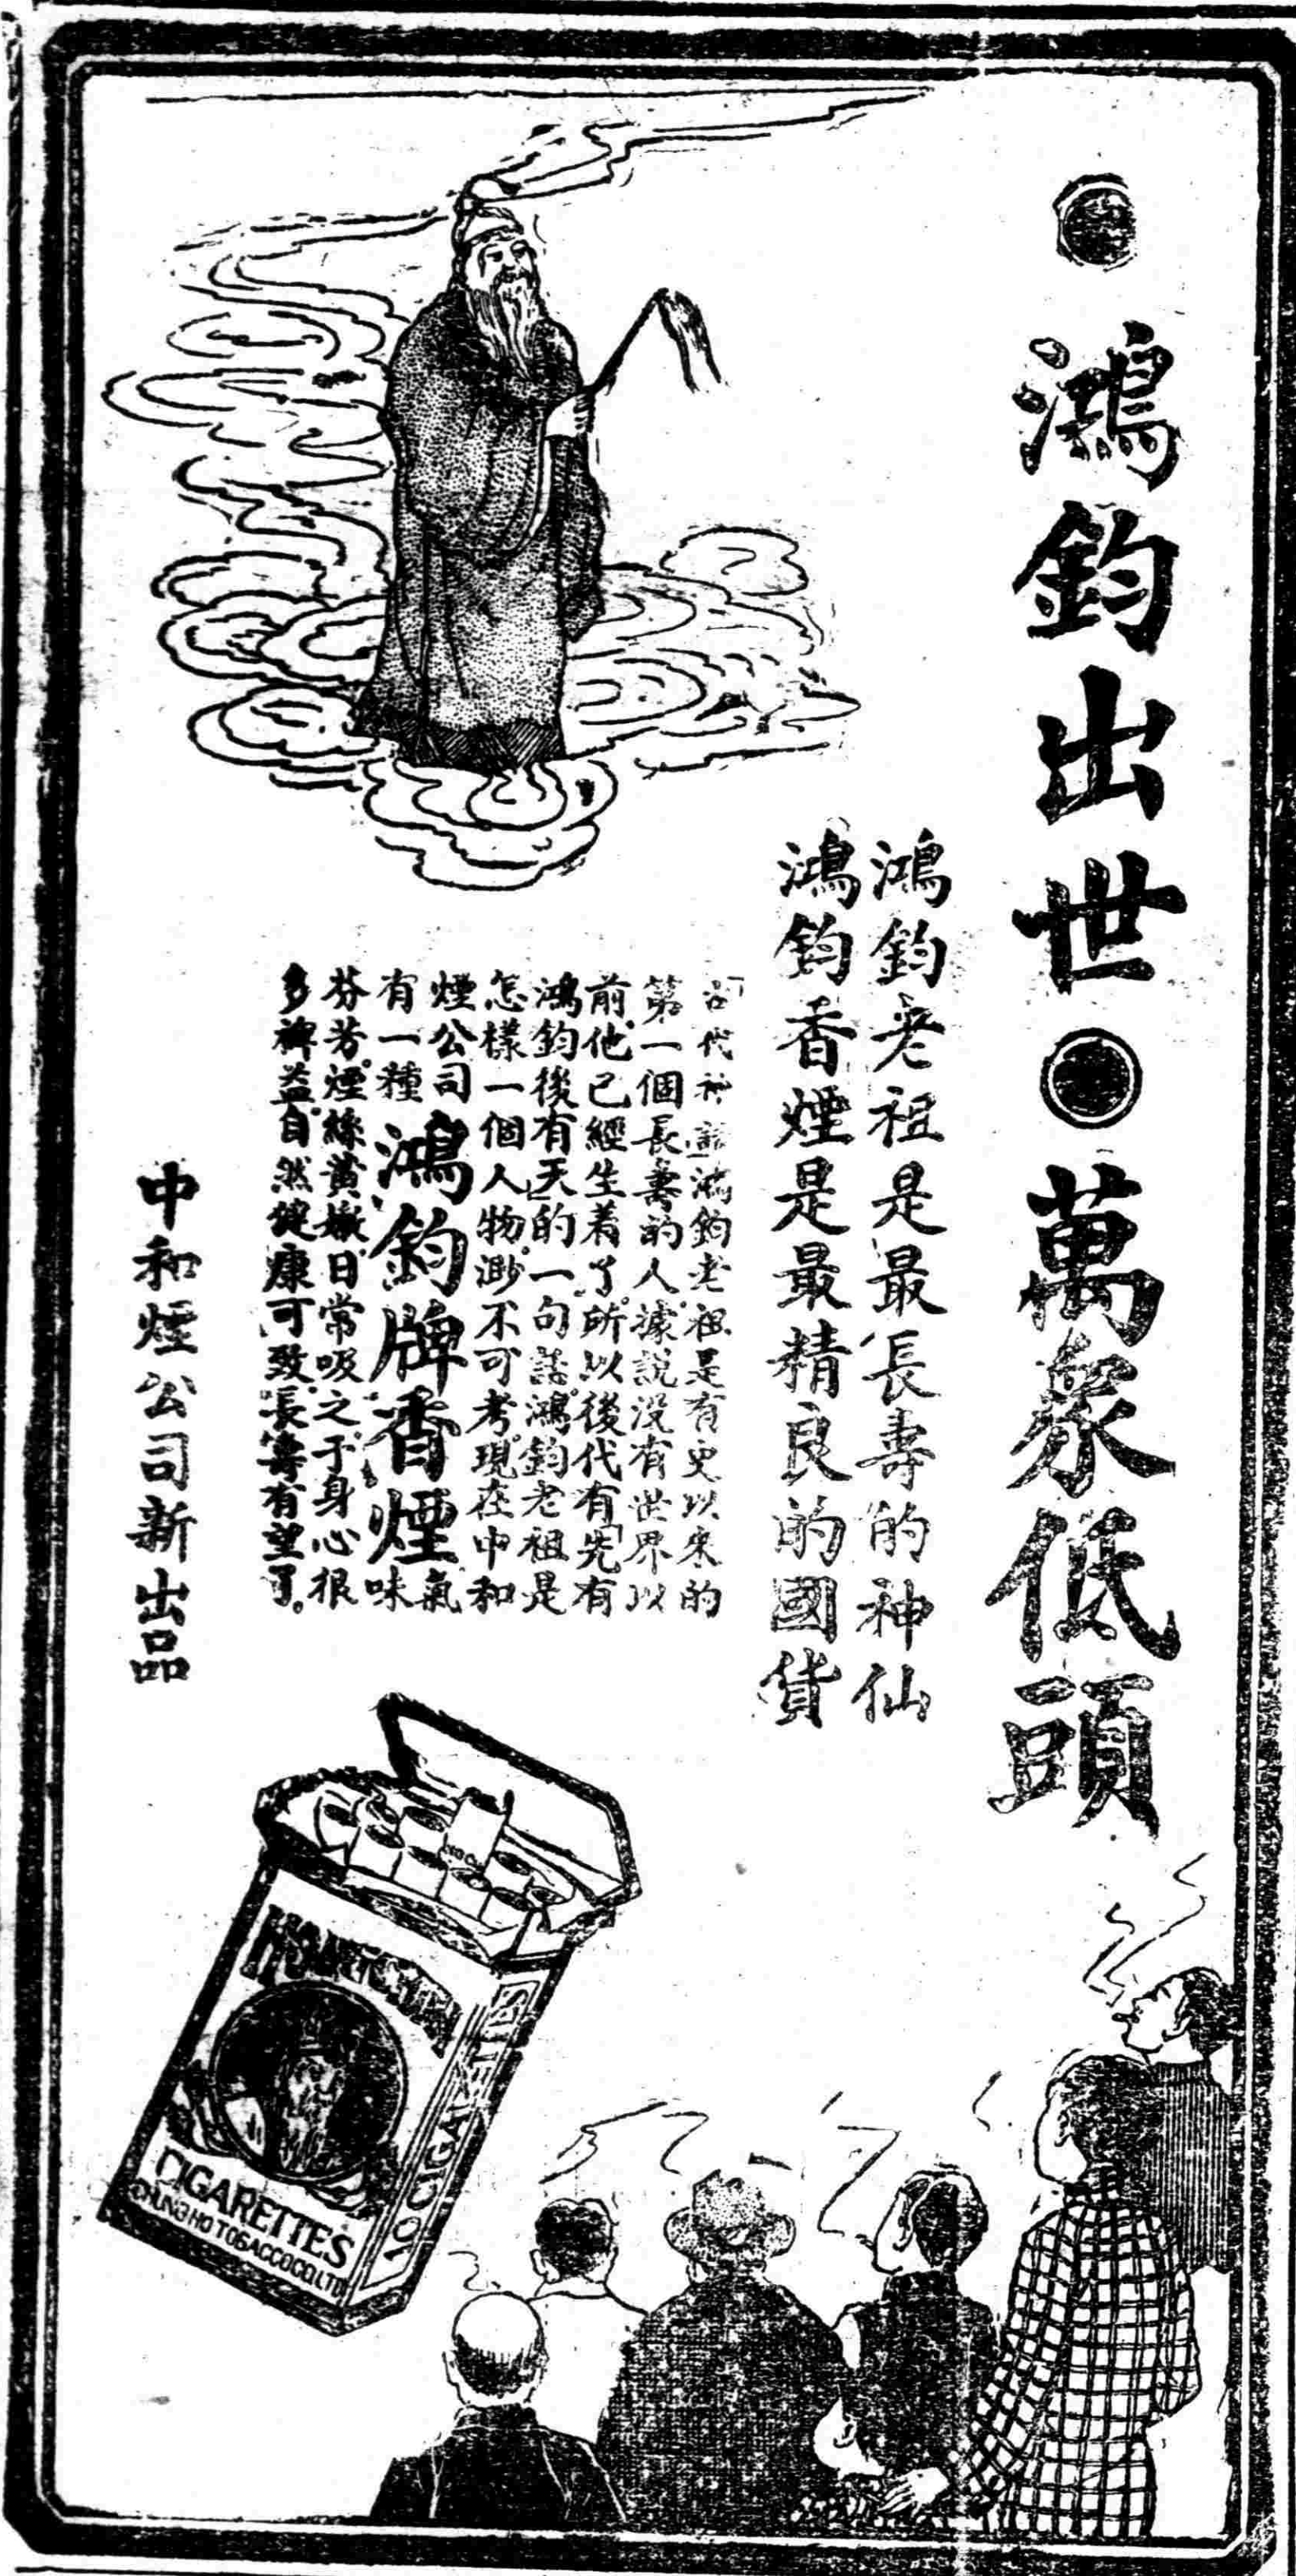 ●鴻鈞出世●萬象低頭
鴻鈞老祖是最長壽的神仙
鴻鈞香煙是最精良的國貨
古代神話鴻鈞老祖是有史以來的
第一個長壽的人。據説没有世界以
前。他已經生着了。所以後代有「先有
鴻鈞後有天」的一句話。鴻鈞老祖是
怎樣一個人物。渺不可考。現在中和
煙公司
有一種
鴻鈞牌香煙
氣味
芬芳。煙絲黄嫩。日常吸之。于身心很
多裨益。自然健康可致。長壽有望了。
中和煙公司新出品
CIGARETTES
CHUNG HO TOBACCO CO LTD
10 CIGARETTES